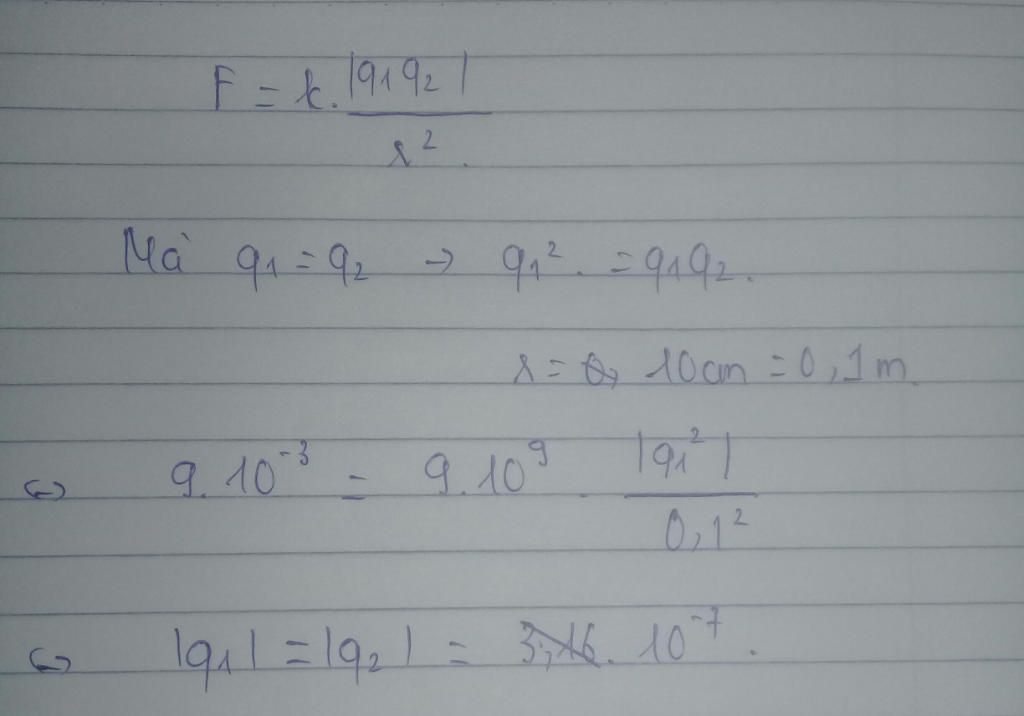 F = k. |q1q2|
r².
Mà q1 = q2 → q1². = q1q2.
r = 10cm = 0,1m.
⇔ 9.10⁻³ = 9.10⁹ . |q1²|
0,1²
⇔ |q1| = |q2| = 10⁻⁷.